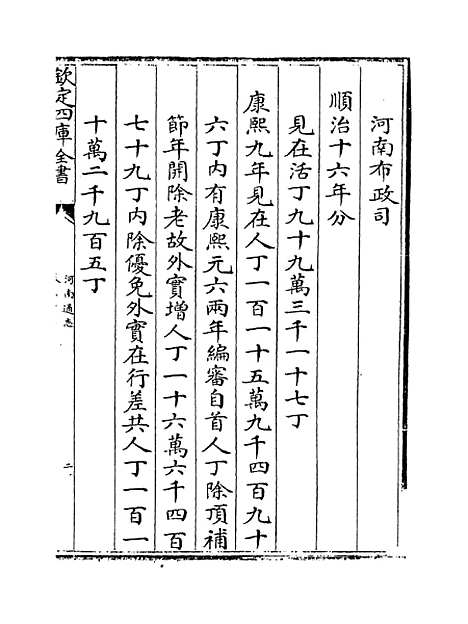 河南布政司
順治十六年分
見在活丁九十九萬三千一十七丁
康熙九年見在人丁一百一十五萬九千四百九十
六丁内有康熙元六兩年編審自首人丁除頂補
節年開除老故外實增人丁一十六萬六千四百
七十九丁内除優免外實在行差共人丁一百一
十萬二千九百五丁
欽定四庫全書
河南通志
二